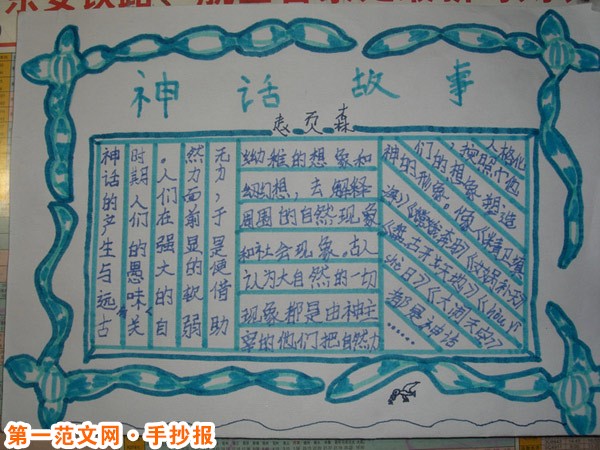 神话故事
森
神话的产生与远古
时期人们的愚昧有关
。人们在强大的自
然力面前显的软弱
无力，于是便借助
幼稚的想象和
幻想，去解释
周围的自然现象
和社会现象。古人
认为大自然的一切
现象都是由神主
宰的他们把自然力
人格化
，按照
们的想象塑造
神的形象。像《精卫填
海》《嫦娥奔月》《女娲补天》
《盘古开天地》《hou yi
日》《大闹天宫》
都是神话……
第一范文网·手抄报